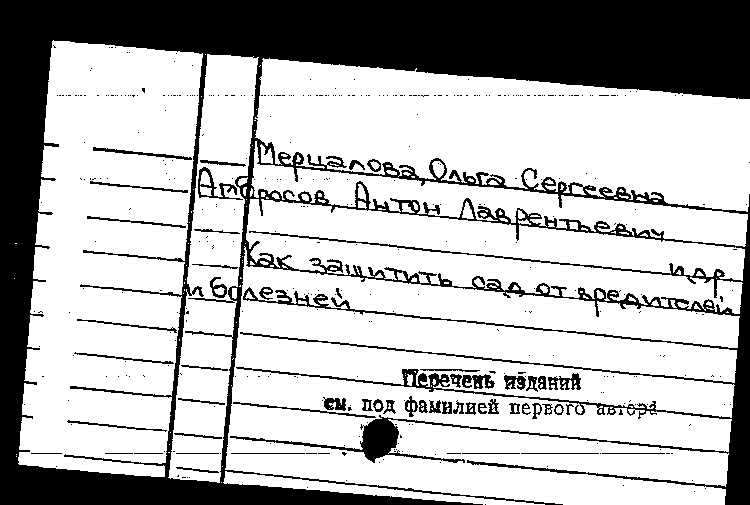 Мерцалова, Ольга Сергеевна
Амбросов, Антон Лаврентьевич
и др.
Как защитить сад от вредителей
и болезней.
Перечень изданий
см. под фамилией первого автора